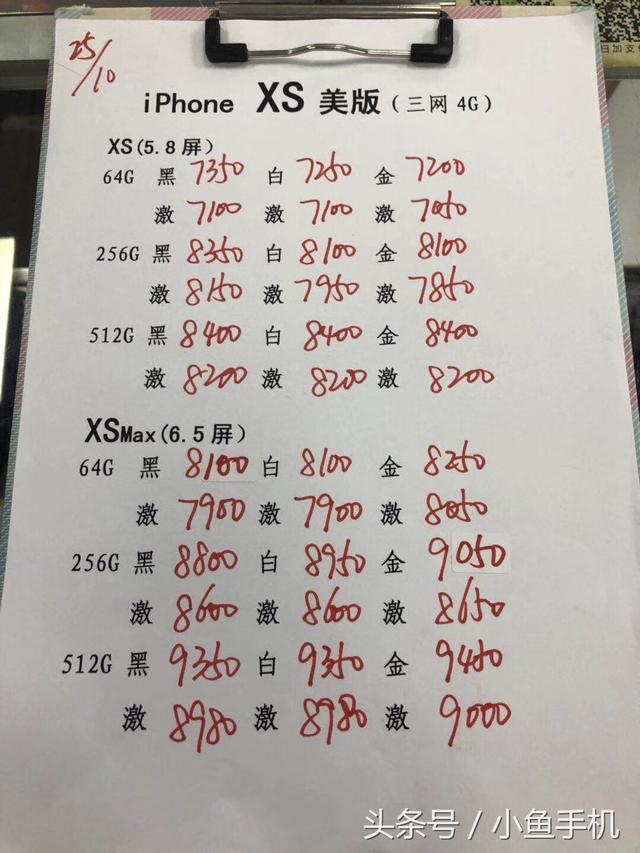 25/10
日加支付
iPhone XS 美版（三网 4G）
XS(5.8屏)
64G 黑 7350 白 7250 金 7200
激 7100 激 7100 激 7050
256G 黑 8350 白 8100 金 8100
激 8150 激 7950 激 7850
512G 黑 8400 白 8400 金 8400
激 8200 激 8200 激 8200
XSMax(6.5屏)
64G 黑 8100 白 8100 金 8250
激 7900 激 7900 激 8050
256G 黑 8800 白 8950 金 9050
激 8600 激 8600 激 8650
512G 黑 9350 白 9350 金 9450
激 8980 激 8980 激 9000
头条号 / 小鱼手机